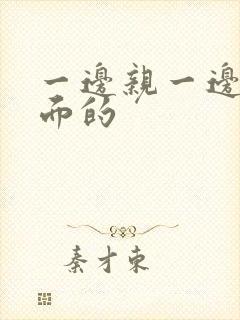 一邊親一邊
而的
秦才東